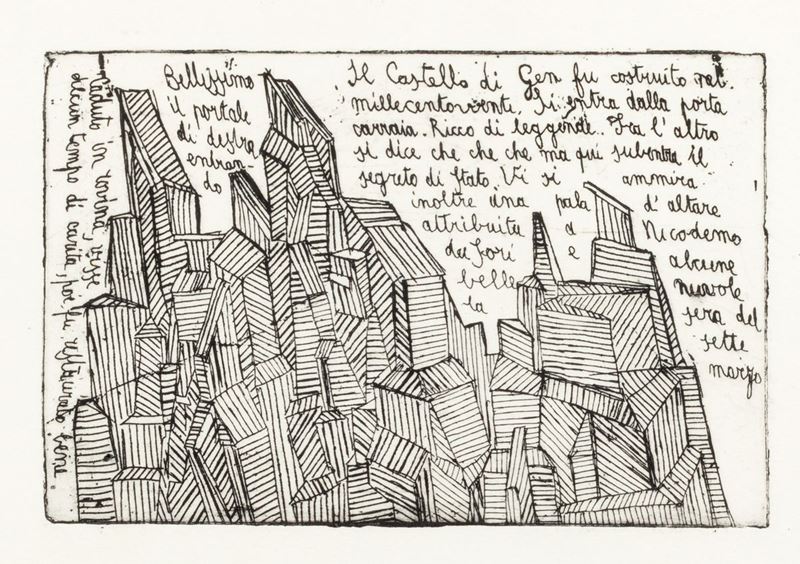 Caduto in rovina, visse
alcun tempo di carità, poi fu restaurato bene.
Bellissimo
il portale
di destra
entran-
do
Il Castello di Gen fu costruito nel
millecentoventi. Si entra dalla porta
carraia. Ricco di leggende. Fra l'altro
si dice che che che ma qui subentra il
segreto di Stato. Vi si ammira
inoltre una pala d'altare
attribuita a Nicodemo
dei Fori e alcune
belle nuvole
la sera del
sette
marzo